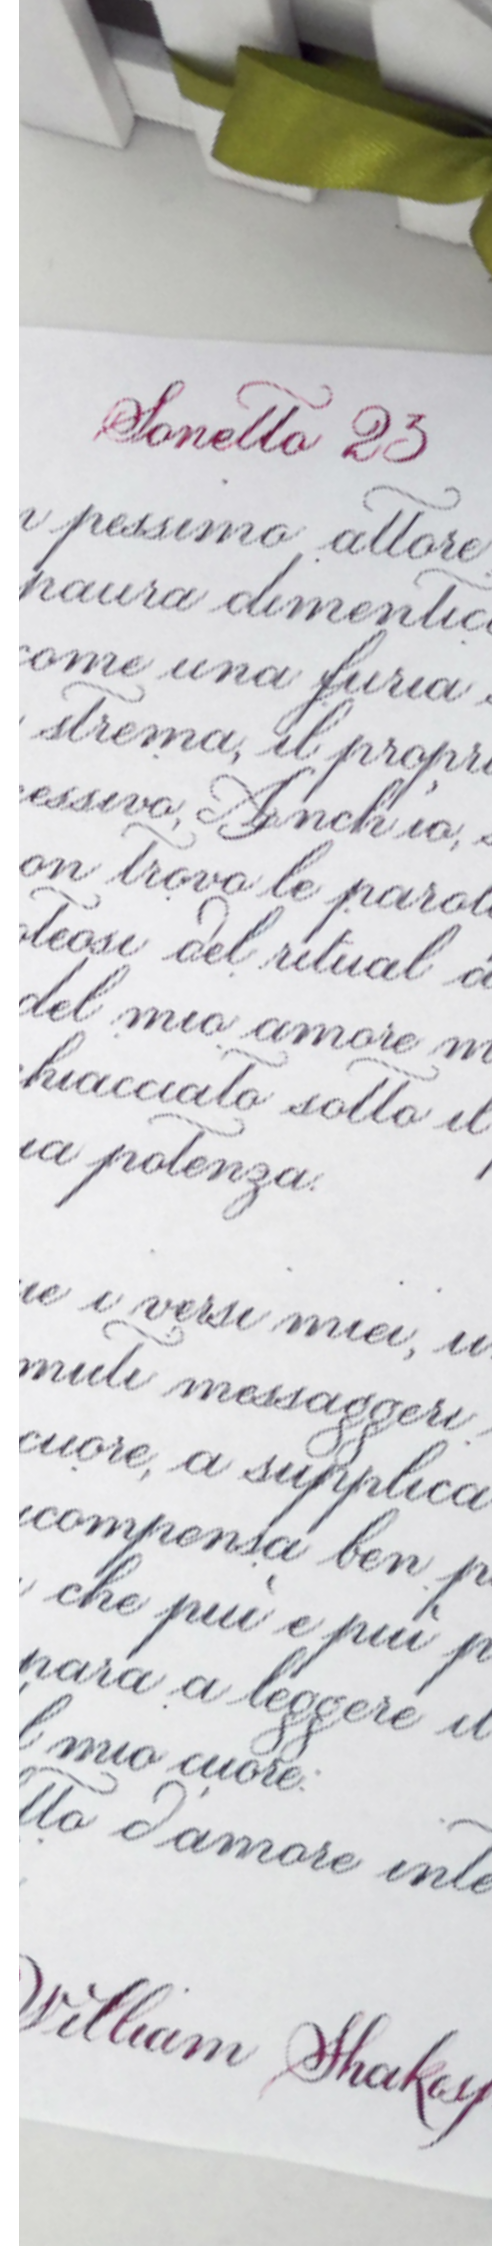 Sonetto 23
pessimo attore
paura dimentic
come una furia
strema, il propri
cessivo, Anch'io,
on trovo le parol
oteosi del ritual d
del mio amore m
chiacciato sotto il
ua potenza.
ue i versi miei, u
muti messaggeri
cuore, a supplica
icompensa ben p
che più e più p
para a leggere il
l mio cuore:
tto d'amore inte
William Shakesp